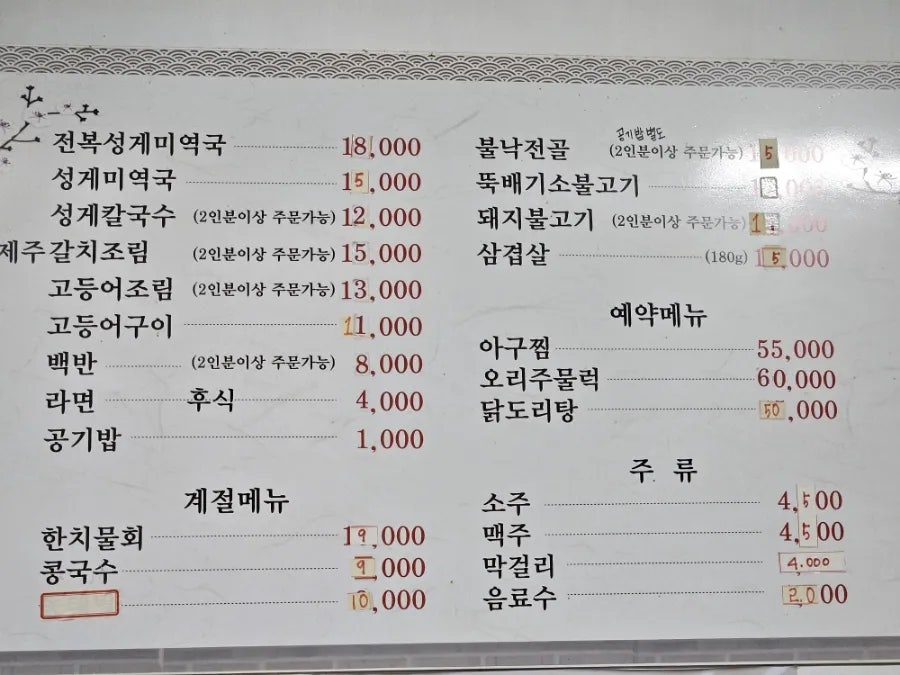 전복성게미역국 18,000
성게미역국 15,000
성게칼국수 (2인분이상 주문가능) 12,000
제주갈치조림 (2인분이상 주문가능) 15,000
고등어조림 (2인분이상 주문가능) 13,000
고등어구이 11,000
백반 (2인분이상 주문가능) 8,000
라면 후식 4,000
공기밥 1,000
계절메뉴
한치물회 19,000
콩국수 9,000
10,000
공기밥별도
불낙전골 (2인분이상 주문가능) 15,000
뚝배기소불고기
돼지불고기 (2인분이상 주문가능)
삼겹살 (180g) 15,000
예약메뉴
아구찜 55,000
오리주물럭 60,000
닭도리탕 50,000
주 류
소주 4,500
맥주 4,500
막걸리 4.000
음료수 2,000